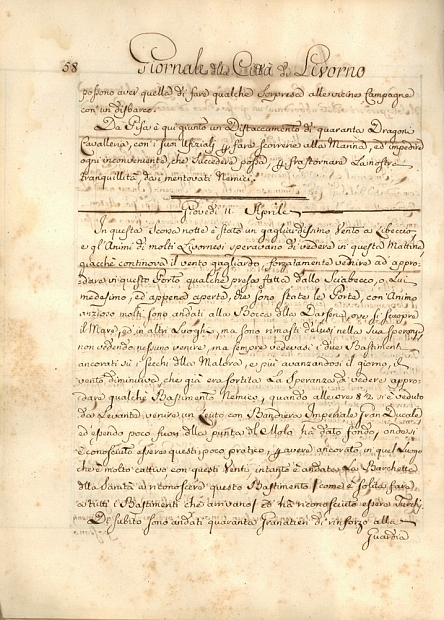 58 Giornale della Città di Livorno
possono aver quelle di fare qualche sorpresa alle vicine Campagne
con un disbarco.
Da Pisa è qui giunto un Distaccamento di quaranta Dragoni
Cavalleria, con i suoi Ufiziali, p fare scorrere alla Marina, ed impedire
ogni inconveniente, che succedere possa, p frastornare la nostra
tranquillità, da i mentovati Nemici.
Giovedì 11 Aprile
In questa scorsa notte è stato un gagliardissimo Vento a Libeccio
e gl'Animi di molti Livornesi speravano di vedere in questa Mattina,
giacchè continova il vento gagliardo, forzatamente venire ad appro-
dare in questo Porto qualche presa fatta dallo Sciabecco, o Lui
medesimo, ed appena aperte, che sono state le Porte, con Animo
anzioso molti sono andati alla Bocca della Darsena, ove si scuopre
il Mare, ed in altri Luoghi, ma sono rimasti delusi nella Sua Speranza,
non vedendo nessuno venire, ma sempre vedevasi i due Bastimenti
ancorati su i secchi della Malora, e più avanzandosi il giorno, il
vento diminuiva, che già era sortita la Speranza di vedere appro-
dare qualche Bastimento Nemico, quando alle ore 8 1/2 si è veduto
da Levante venire un Leuto con Bandiera Imperiale Gran Ducale,
ed essendo poco fuori della punta del Molo ha dato fondo, onde si
è conosciuto essere questi poco pratico, p avere ancorato in quel Luogo
che è molto cattivo con questi Venti, intanto è andata La Barchetta
della Sanità a riconoscere questo Bastimento, come è solita fare
a tutti i Bastimenti che arrivano, ed ha riconosciuto essere Turchi.
Di subito sono andati quaranta Granatieri di rinforzo alla
Guardia